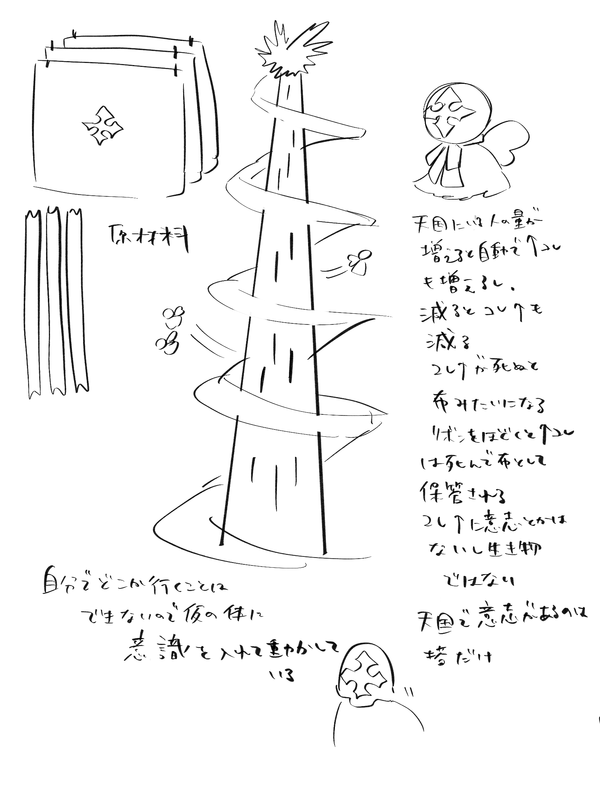 原材料
天国にいる人の量が
増えると自動で↑コレ
も増えるし、
減るとコレ↑も
減る
コレ↑が死ぬと
布みたいになる
リボンをほどくと↑コレ
は死んで布として
保管される
コレ↑に意志とかは
ないし生き物
ではない
天国で意志があるのは
塔だけ
自分でどこか行くことは
できないので仮の体に
意識を入れて動かして
いる